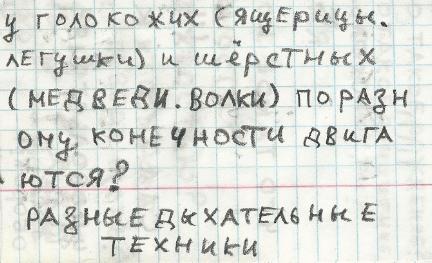 У ГОЛОКОЖИХ (ЯЩЕРИЦЫ.
ЛЕГУШКИ) И ШЁРСТНЫХ
(МЕДВЕДИ. ВОЛКИ) ПОРАЗН
ОМУ КОНЕЧНОСТИ ДВИГА
ЮТСЯ?
РАЗНЫЕ ДЫХАТЕЛЬНЫЕ
ТЕХНИКИ